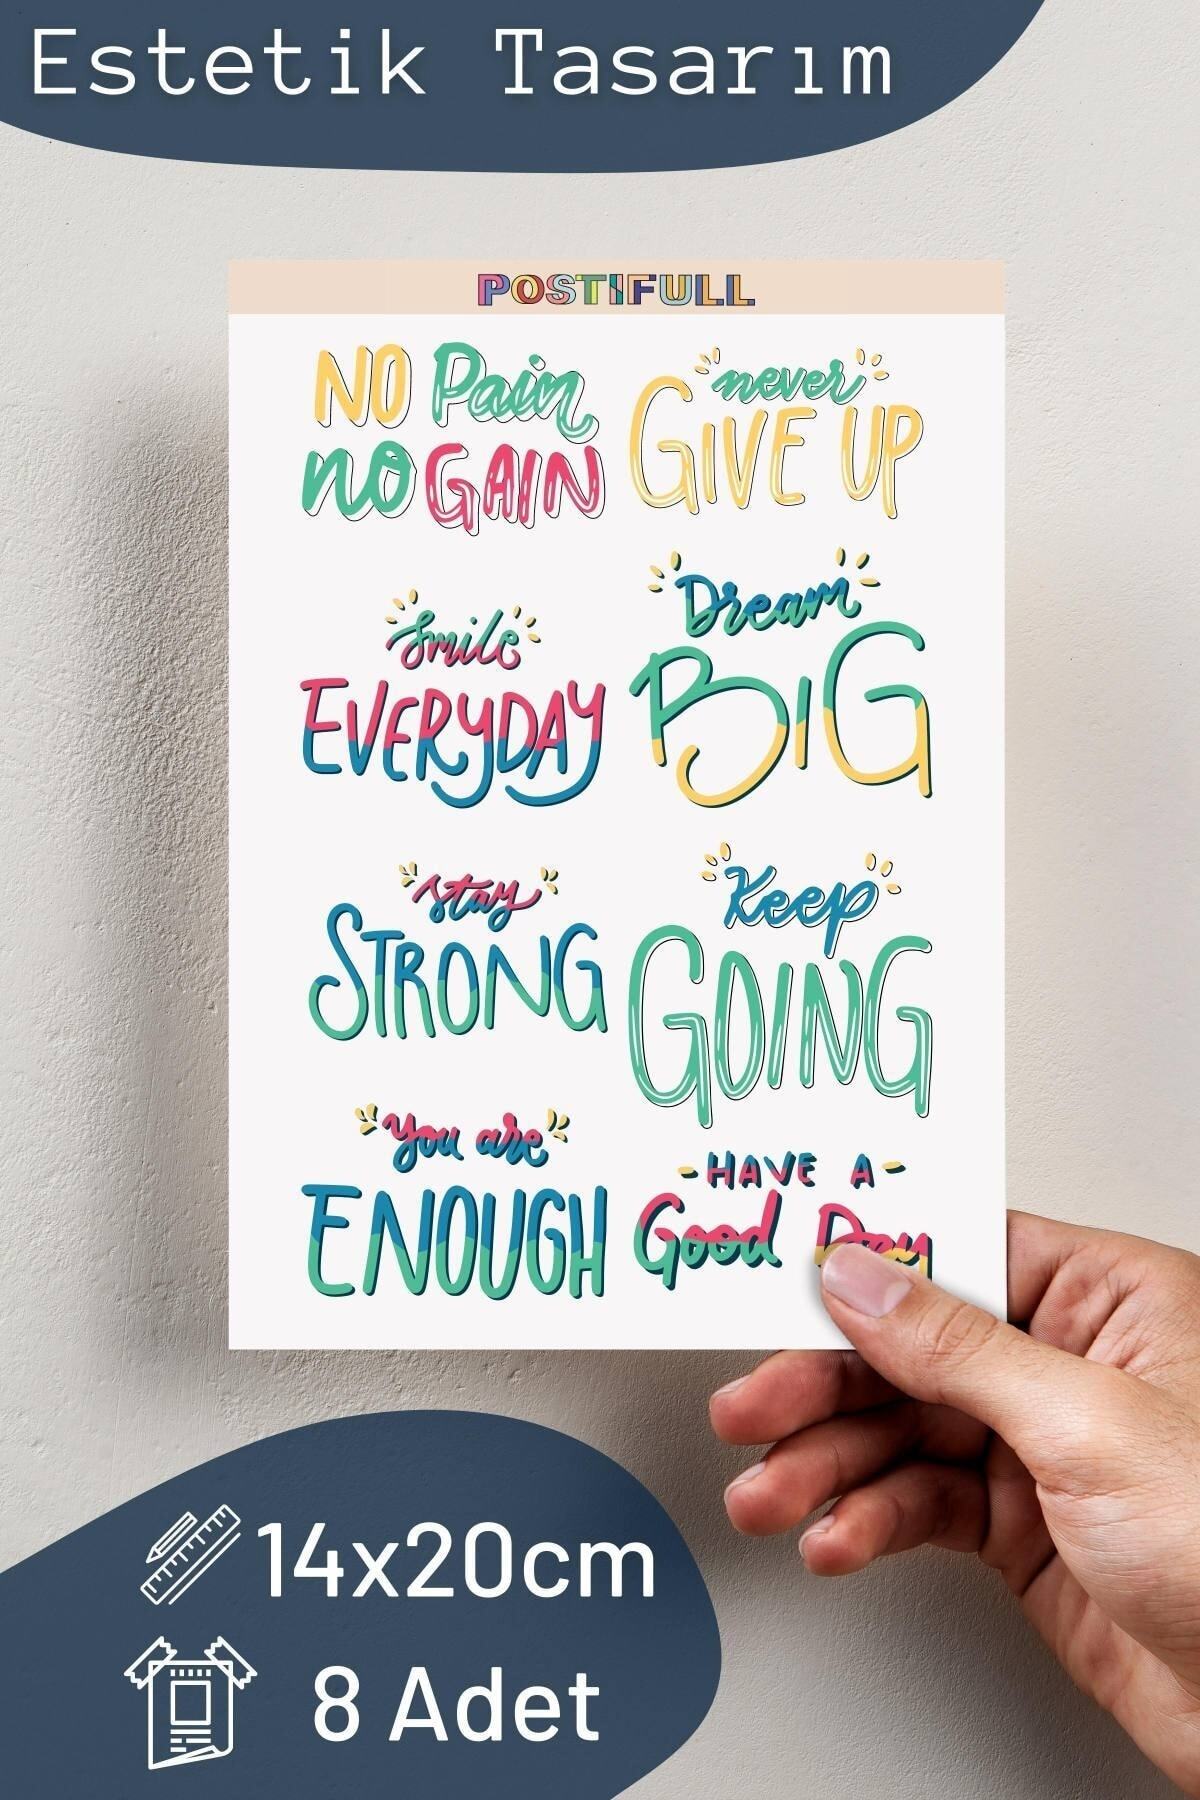 Estetik Tasarım
POSTIFULL
NO Pain
no GAIN
never
GIVE UP
Smile
EVERYDAY
Dream
BIG
stay
STRONG
Keep
GOING
You are
ENOUGH
- HAVE A -
Good Day
14x20cm
8 Adet